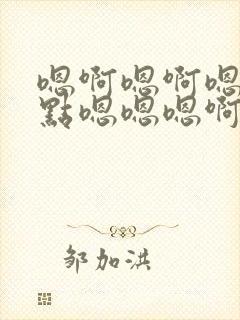 嗯啊嗯啊嗯
點嗯嗯嗯啊
邹加洪